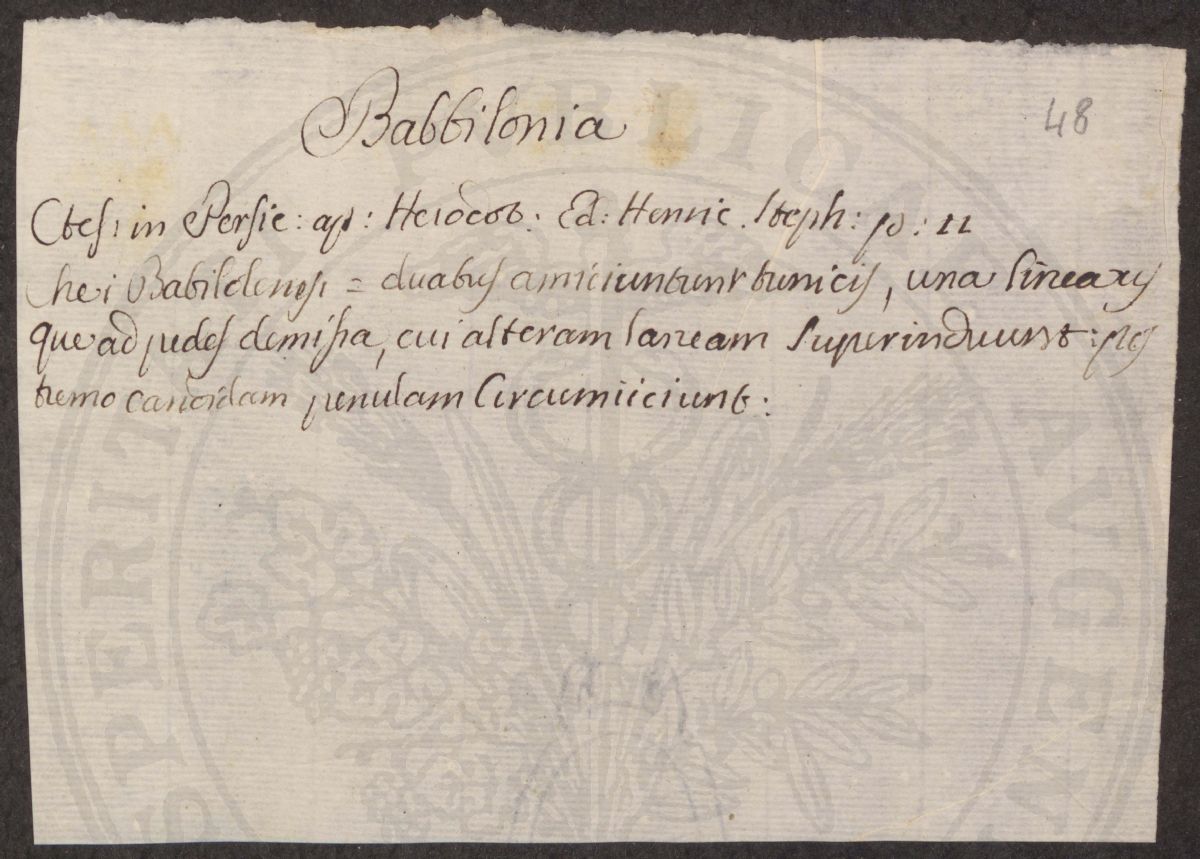 Babbilonia
48
Ctes: in Persic: ap: Herodot: Ed: Henric. Steph: p: 11
che i = duabus amiciuntunt tunicis, una linea
que ad pedes demissa, cui alteram laneam superinduunt: pos
tremo candidam penulam Circumiiciunt: